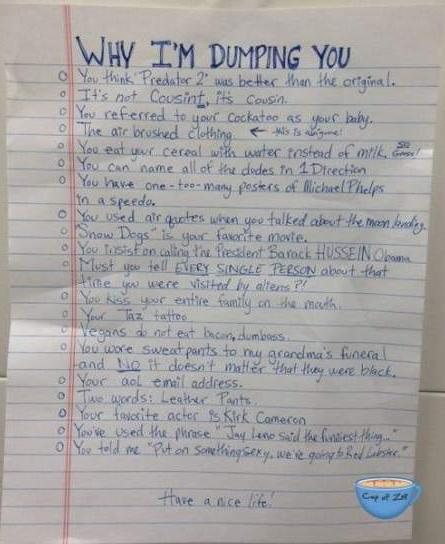 WHY I'M DUMPING YOU
You think 'Predator 2' was better than the original.
It's not Cousint, it's cousin.
You referred to your Cockatoo as your baby.
The air brushed clothing. ← this is a biggie!
You eat your cereal with water instead of milk. Gross!
You can name all of the dudes in 1 Direction
You have one-too-many posters of Michael Phelps
in a speedo.
You used air quotes when you talked about the moon landing.
"Snow Dogs" is your favorite movie.
You insist on calling the President Barack HUSSEIN Obama
Must you tell EVERY SINGLE PERSON about that
time you were visited by aliens?!
You kiss your entire family on the mouth.
Your Taz tattoo
Vegans do not eat bacon, dumbass.
You wore sweatpants to my grandma's funeral
and NO it doesn't matter that they were black.
Your aol email address.
Two words: Leather Pants.
Your favorite actor is Kirk Cameron
You've used the phrase "Jay Leno said the funniest thing..."
You told me "Put on something sexy, we're going to Red Lobster."
Have a nice life!
Cup of Zup